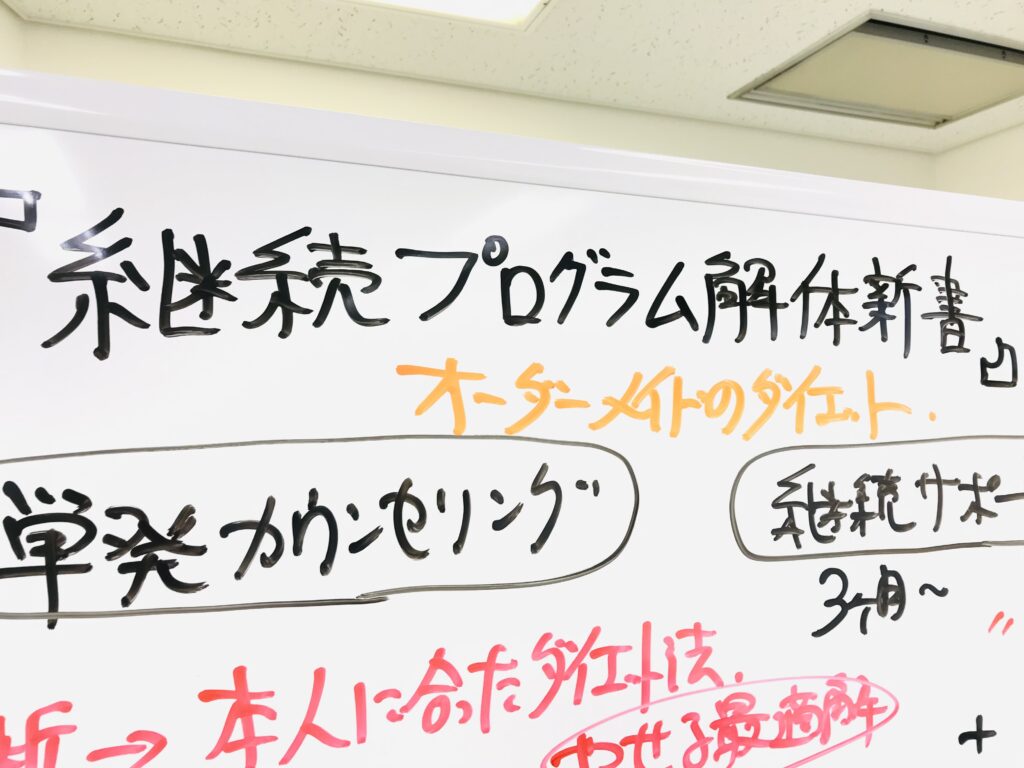 継続プログラム解体新書』
オーダーメイドのダイエット.
単発カウンセリング
継続サポー
3ヶ月〜
析→本人に合ったダイエット法.
やせる最適解
+